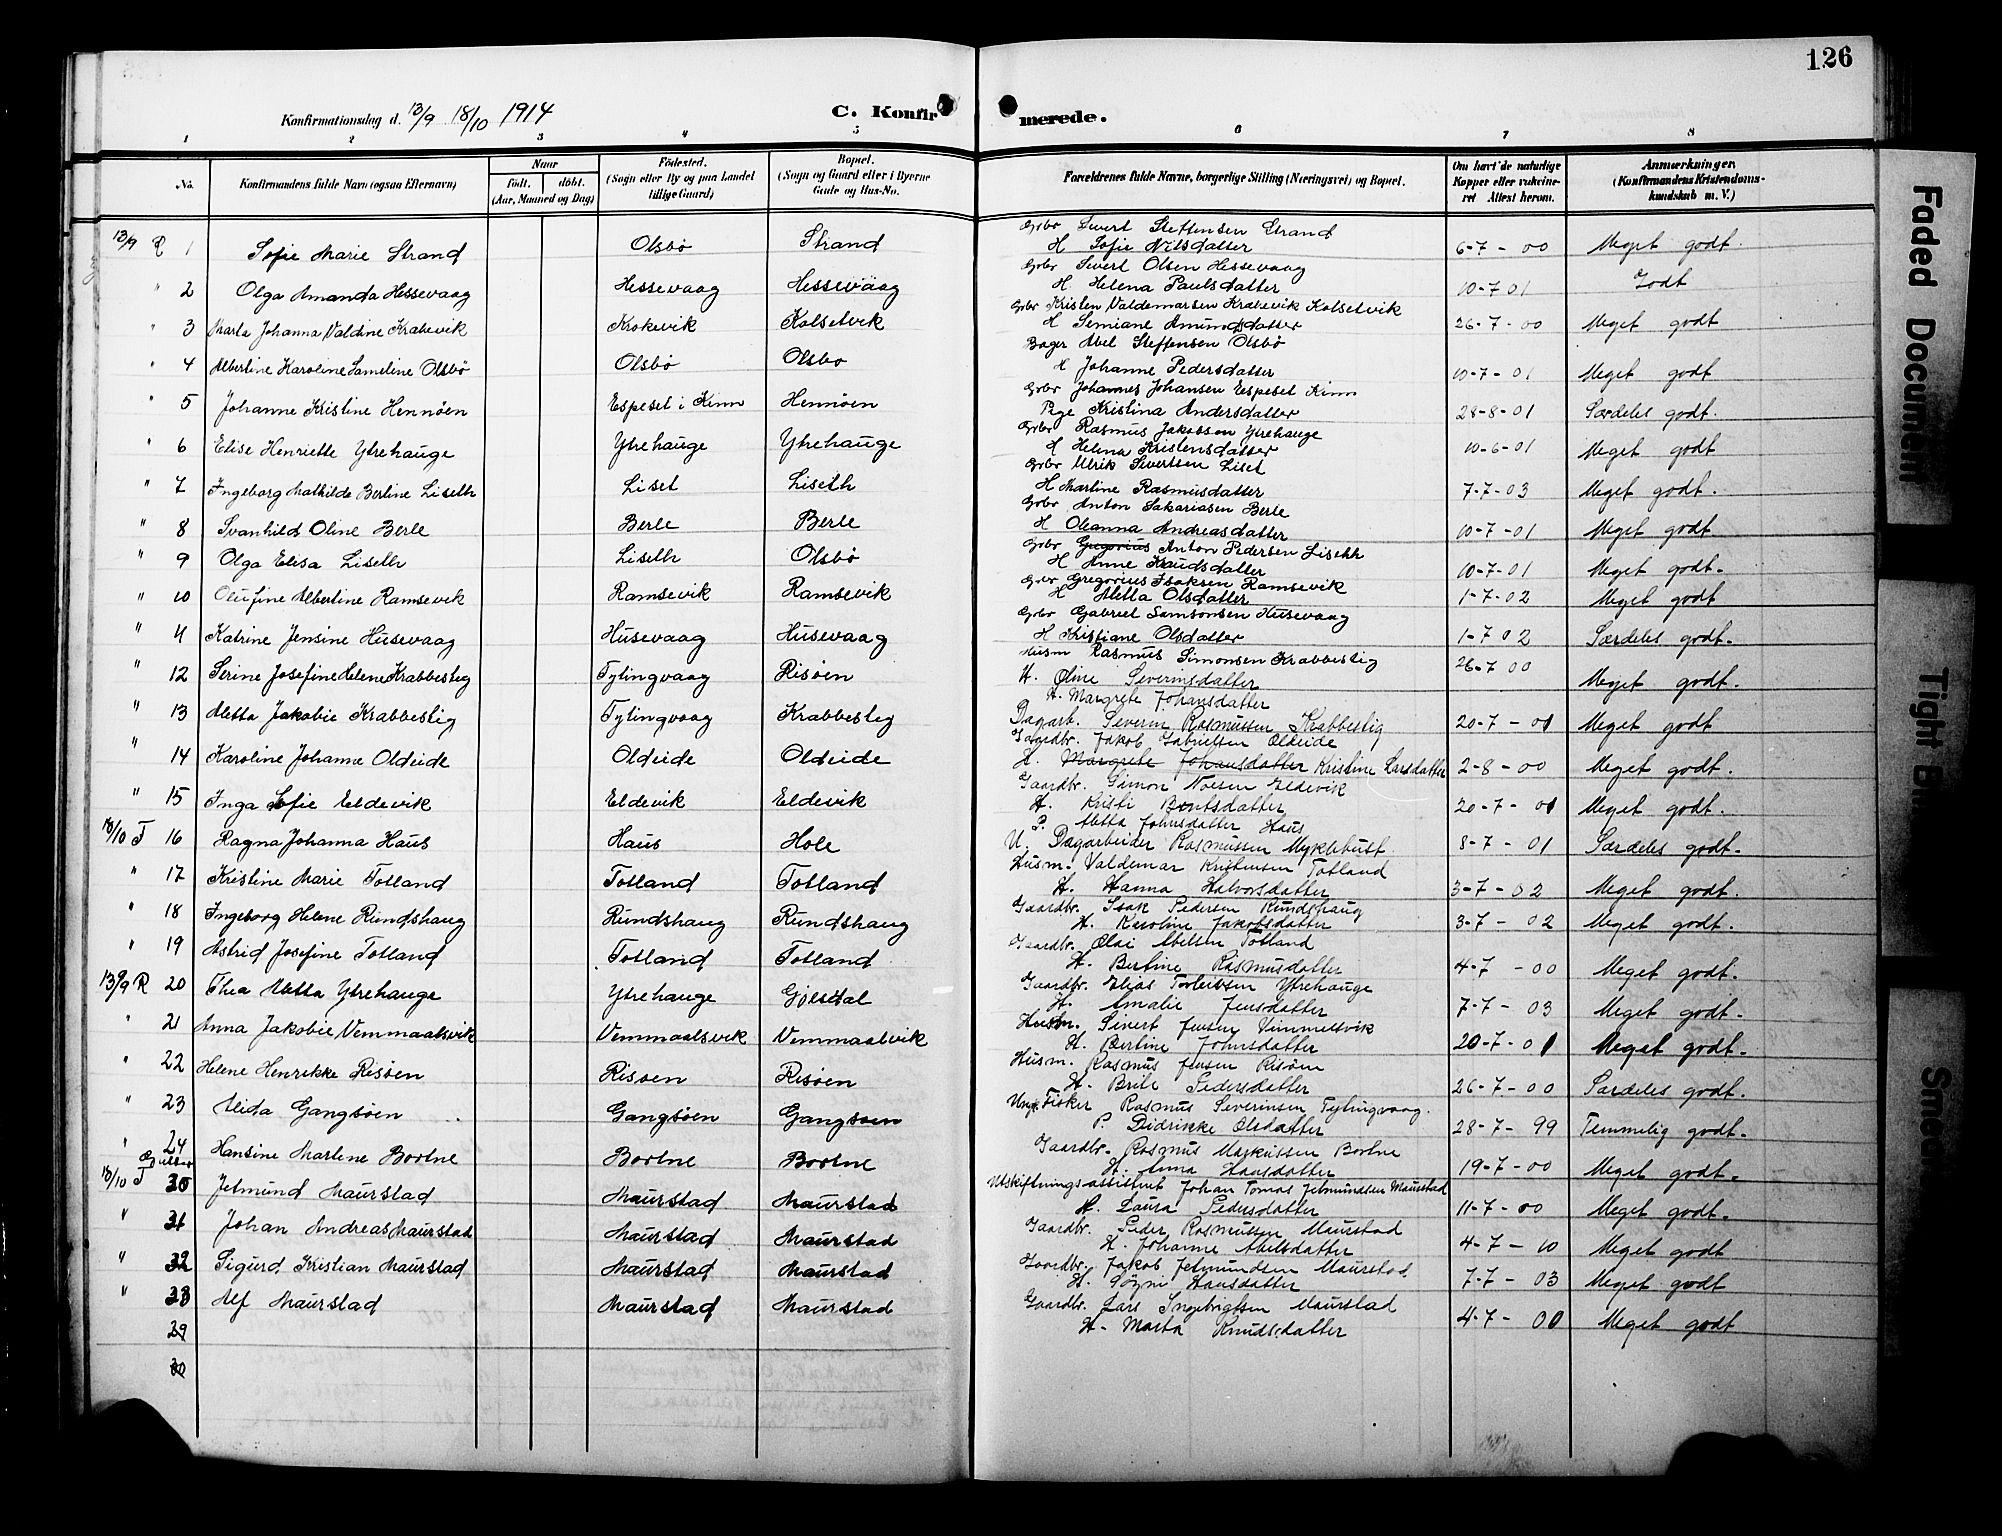 126
Konfirmationsdag d. 13/9 18/10 1914
C. Konfirmerede.
1 2 3 4 5 6 7 8
No. Konfirmandens fulde Navn (ogsaa Efternavn) Naar født. døbt. (Aar, Maaned og Dag) Fødested. (Sogn eller By og paa Landet tillige Gaard) Bopæl. (Sogn og Gaard eller i Byerne Gade og Hus-No. Forældrenes fulde Navne, borgerlige Stilling (Næringsvei) og Bopæl. Om havt de naturlige Kopper eller vakcineret Attest herom. Anmærkninger (Konfirmandens Kristendomskundskab m. V.)
13/9 R 1 Sofie Marie Strand Olsbø Strand Grbr Sivert Steffensen Strand
H Sofie Nilsdatter 6-7-00 Meget godt.
" 2 Olga Amanda Hessevaag Hessevaag Hessevaag Grbr Sivert Olsen Hessevaag
H Helena Paulsdatter 10-7 01 Godt
" 3 Marta Johanna Valdine Krakevik Krokevik Kolsetvik Grbr Kristen Valdemarsen Krakevik Kolsetvik
H Semiane Amundsdatter 26-7-00 Meget godt
" 4 Albertine Karoline Lameline Olsbø Olsbø Olsbø Bager Abel Steffensen Olsbø
H Johanne Pedersdatter 10-7-01 Meget godt
" 5 Johanne Kristine Hennøen Espeset i Kinn Hennøen Grbr Johannes Johansen Espeset Kinn
Pige Kristina Andersdatter 28-8-01 Særdeles godt.
" 6 Elise Henriette Ytrehauge Ytrehauge Ytrehauge Grbr Rasmus Jakobsen Ytrehauge
H Helena Kristensdatter 10-6-01 Meget godt
" 7 Ingeborg Mathilde Berline Liseth Liset Liseth Grbr Ulrik Sivertsen Liset
H Martine Rasmusdatter 7-7-03 Meget godt.
" 8 Svanhild Oline Berle Berle Berle Grbr Anton Sakariasen Berle
H Oleanna Andreasdatter 10-7-01 Meget godt
" 9 Olga Elisa Liseth Liseth Olsbø Grbr Gregorius Anton Pedersen Liseth
H Anne Knudsdatter 10-7-01 Meget godt.
" 10 Olufine Albertine Ramsevik Ramsevik Ramsevik Grbr Gregorius Isaksen Ramsevik
H Aletta Olsdatter 1-7-02 Meget godt
" 11 Katrine Jensine Husevaag Husevaag Husevaag Grbr Gabriel Samsonsen Husevaag
H Kristiane Olsdatter 1-7 02 Særdeles godt.
" 12 Serine Josefine Helene Krabbestig Tytingvaag Risøen Husm Rasmus Simonsen Krabbestig
H. Oline Severinsdatter 26-7 00 Meget godt.
H. Margrete Johansdatter
" 13 Aletta Jakobie Krabbestig Tytingvaag Krabbestig Dagarb. Severin Rasmussen Krabbestig 20-7-01 Meget godt
" 14 Karoline Johanne Oldeide Oldeide Oldeide Gaardbr. Jakob Gabrielsen Oldeide
H. Margrete Johansdatter Kristine Larsdatter 2-8-00 Meget godt.
" 15 Inga Sofie Eldevik Eldevik Eldevik Gaardbr. Simon Noesen Eldevik
H. Kristi Bentsdatter 20-7-01 Meget godt.
P. Aletta Johnsdatter Haus
18/10 T 16 Ragna Johanna Haus Haus Hole U. Dagarbeider Rasmussen Myklebust 8-7-01 Særdeles godt.
" 17 Kristine Marie Totland Totland Totland Husm. Valdemar Kristensen Totland
H. Hanna Halvorsdatter 3-7-02 Meget godt.
" 18 Ingeborg Helene Rundshaug Rundshaug Rundshaug Gaardbr. Isak Pedersen Rundshaug
H. Karoline Jakobsdatter 3-7-02 Meget godt.
" 19 Astrid Josefine Totland Totland Totland Gaardbr. Olai Abelsen Totland
H. Bertine Rasmusdatter 4-7-00 Meget godt.
13/9 R 20 Thea Aletta Ytrehauge Ytrehauge Gjelsdal Gaardbr. Elias Torleivsen Ytrehauge
H. Amalie Jensdatter 7-7-03 Meget godt.
" 21 Anna Jakobie Vemmaalsvik Vemmaalsvik Vemmaalvik Husm. Sivert Jensen Vimmelsvik
H. Bertine Johnsdatter 20-7-01 Meget godt.
" 22 Helene Henrikke Risøen Risøen Risøen Husm. Rasmus Jensen Risøen
H. Brite Pedersdatter 26-7-00 Særdeles godt.
" 23 Alida Gangsøen Gangsøen Gangsøen Ungk. Fisker Rasmus Severinsen Tytingvaag.
P. Didrikke Olsdatter 28-7-99 Temmelig godt.
" 24 Hansine Marlene Bortne Bortne Bortne Gaardbr. Rasmus Markussen Bortne
H. Anna Hansdatter 19-7-00 Meget godt.
18/10 T 30 Jetmund Maurstad Maurstad Maurstad Utskiftningsassistent Johan Tomas Jetmundsen Maurstad
H. Laura Pedersdatter 11-7-00 Meget godt.
" 31 Johan Andreas Maurstad Maurstad Maurstad Gaardbr. Peder Rasmussen Maurstad
H. Johanne Abelsdatter 4-7-10 Meget godt
" 32 Sigurd Kristian Maurstad Maurstad Maurstad Gaardbr. Jakob Jetmundsen Maurstad
H. Søgni Hansdatter 7-7-03 Meget godt
" 33 Alf Maurstad Maurstad Maurstad Gaardbr. Lars Ingebrigtsen Maurstad
H. Marta Knudsdatter 4-7-00 Meget godt
29
30
Faded Document
Tight Bin
Smea